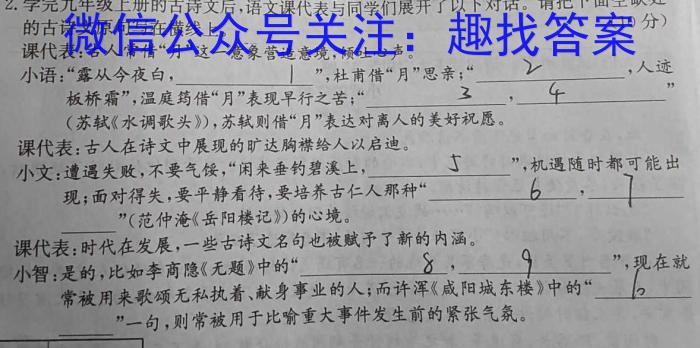 2.学完九年级上册的古诗文后,语文课代表与同学们展开了以下对话。请把下面空缺处
的古诗文原句写在横线上。 (10分)
微信公众号关注:趣找答案
课代表:古人常借“月”这一意象营造意境,倾吐心声。
小语:“露从今夜白, 1 ”,杜甫借“月”思亲;“ 2 ,人迹
板桥霜”,温庭筠借“月”表现早行之苦;“ 3 , 4 ”
(苏轼《水调歌头》),苏轼则借“月”表达对离人的美好祝愿。
课代表:古人在诗文中展现的旷达胸襟给人以启迪。
小文:遭遇失败,不要气馁,“闲来垂钓碧溪上, 5 ”,机遇随时都可能出
现;面对得失,要平静看待,要培养古仁人那种“ 6 , 7
”(范仲淹《岳阳楼记》)的心境。
课代表:时代在发展,一些古诗文名句也被赋予了新的内涵。
小智:是的,比如李商隐《无题》中的“ 8 , 9 ”,现在就
常被用来歌颂无私执着、献身事业的人;而许浑《咸阳城东楼》中的“ 10
”一句,则常被用于比喻重大事件发生前的紧张气氛。